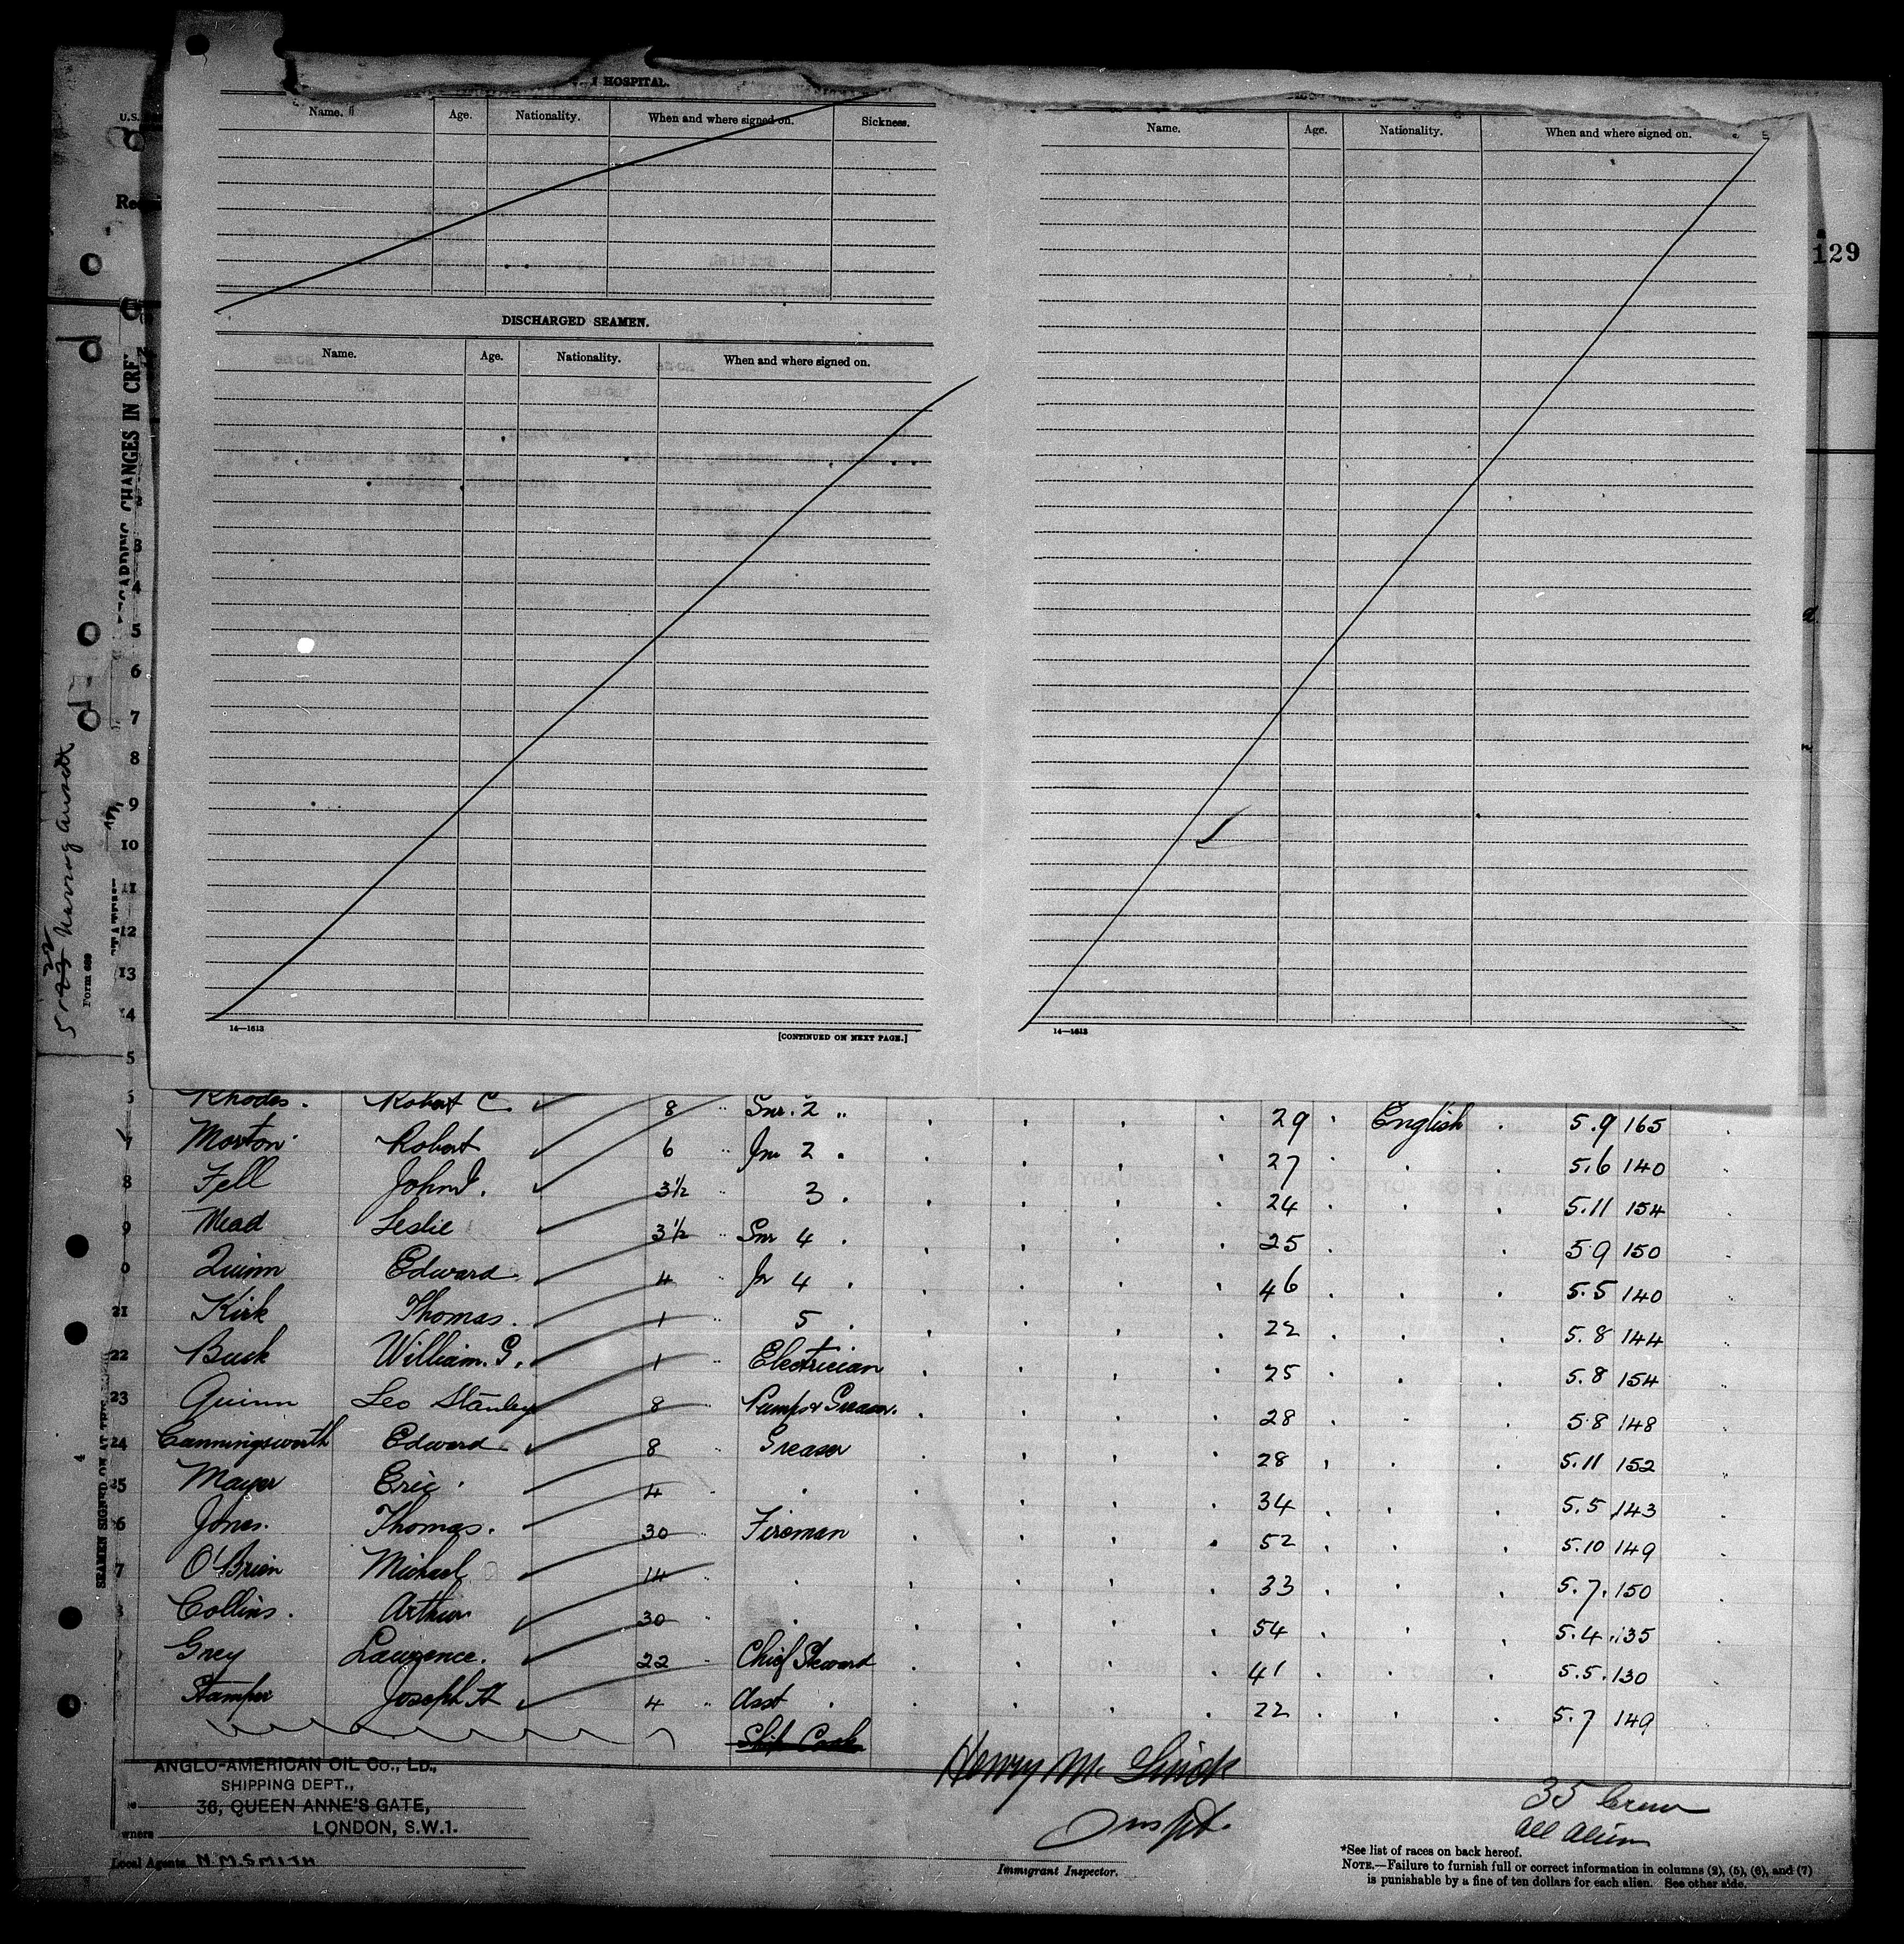 HOSPITAL.
Name. Age. Nationality. When and where signed on. Sickness.
Name. Age. Nationality. When and where signed on.
U.S.
129
DISCHARGED SEAMEN.
Name. Age. Nationality. When and where signed on.
CHANGES IN
Form 689
3
4
5
6
7
8
9
10
11
12
13
14
5
14—1613 [CONTINUED ON NEXT PAGE.] 14—1613
6 Rhodes. Robert C. 8 Snr. 2 " 29 English 5.9 165
7 Morton Robert 6 " Jnr 2 27 5.6 140
8 Fell John J. 3½ " 3 24 5.11 154
9 Mead Leslie 3½ " Snr 4 25 5.9 150
0 Quinn Edward 4 " Jr 4 46 5.5 140
21 Kirk Thomas. 1 " 5 22 5.8 144
22 Buck William. G. 1 " Electrician 25 5.8 154
23 Quinn Leo Stanley 8 " Pump & Greaser. 28 5.8 148
24 Canningsworth Edward 8 " Greaser 28 5.11 152
25 Mayer Eric 4 34 5.5 143
26 Jones. Thomas. 30 " Fireman 52 5.10 149
7 O'Brien Michael 14 " 33 5.7. 150
Collins. Arthur 30 " 54 5.4 135
Grey Lawrence. 22 " Chief Steward 41 5.5. 130
Stamper Joseph H 4 " Asst 22 5.7 149
Ship Cook
SEAMEN SIGNED ON AT THIS
ANGLO-AMERICAN OIL CO., LD.,
SHIPPING DEPT.,
36, QUEEN ANNE'S GATE,
LONDON, S.W.1.
wners
Local Agents N.M.SMITH
Henry M.
Inspt.
Immigrant Inspector.
35 Crew
All Alien
*See list of races on back hereof.
NOTE.—Failure to furnish full or correct information in columns (2), (5), (6), and (7)
is punishable by a fine of ten dollars for each alien. See other side.